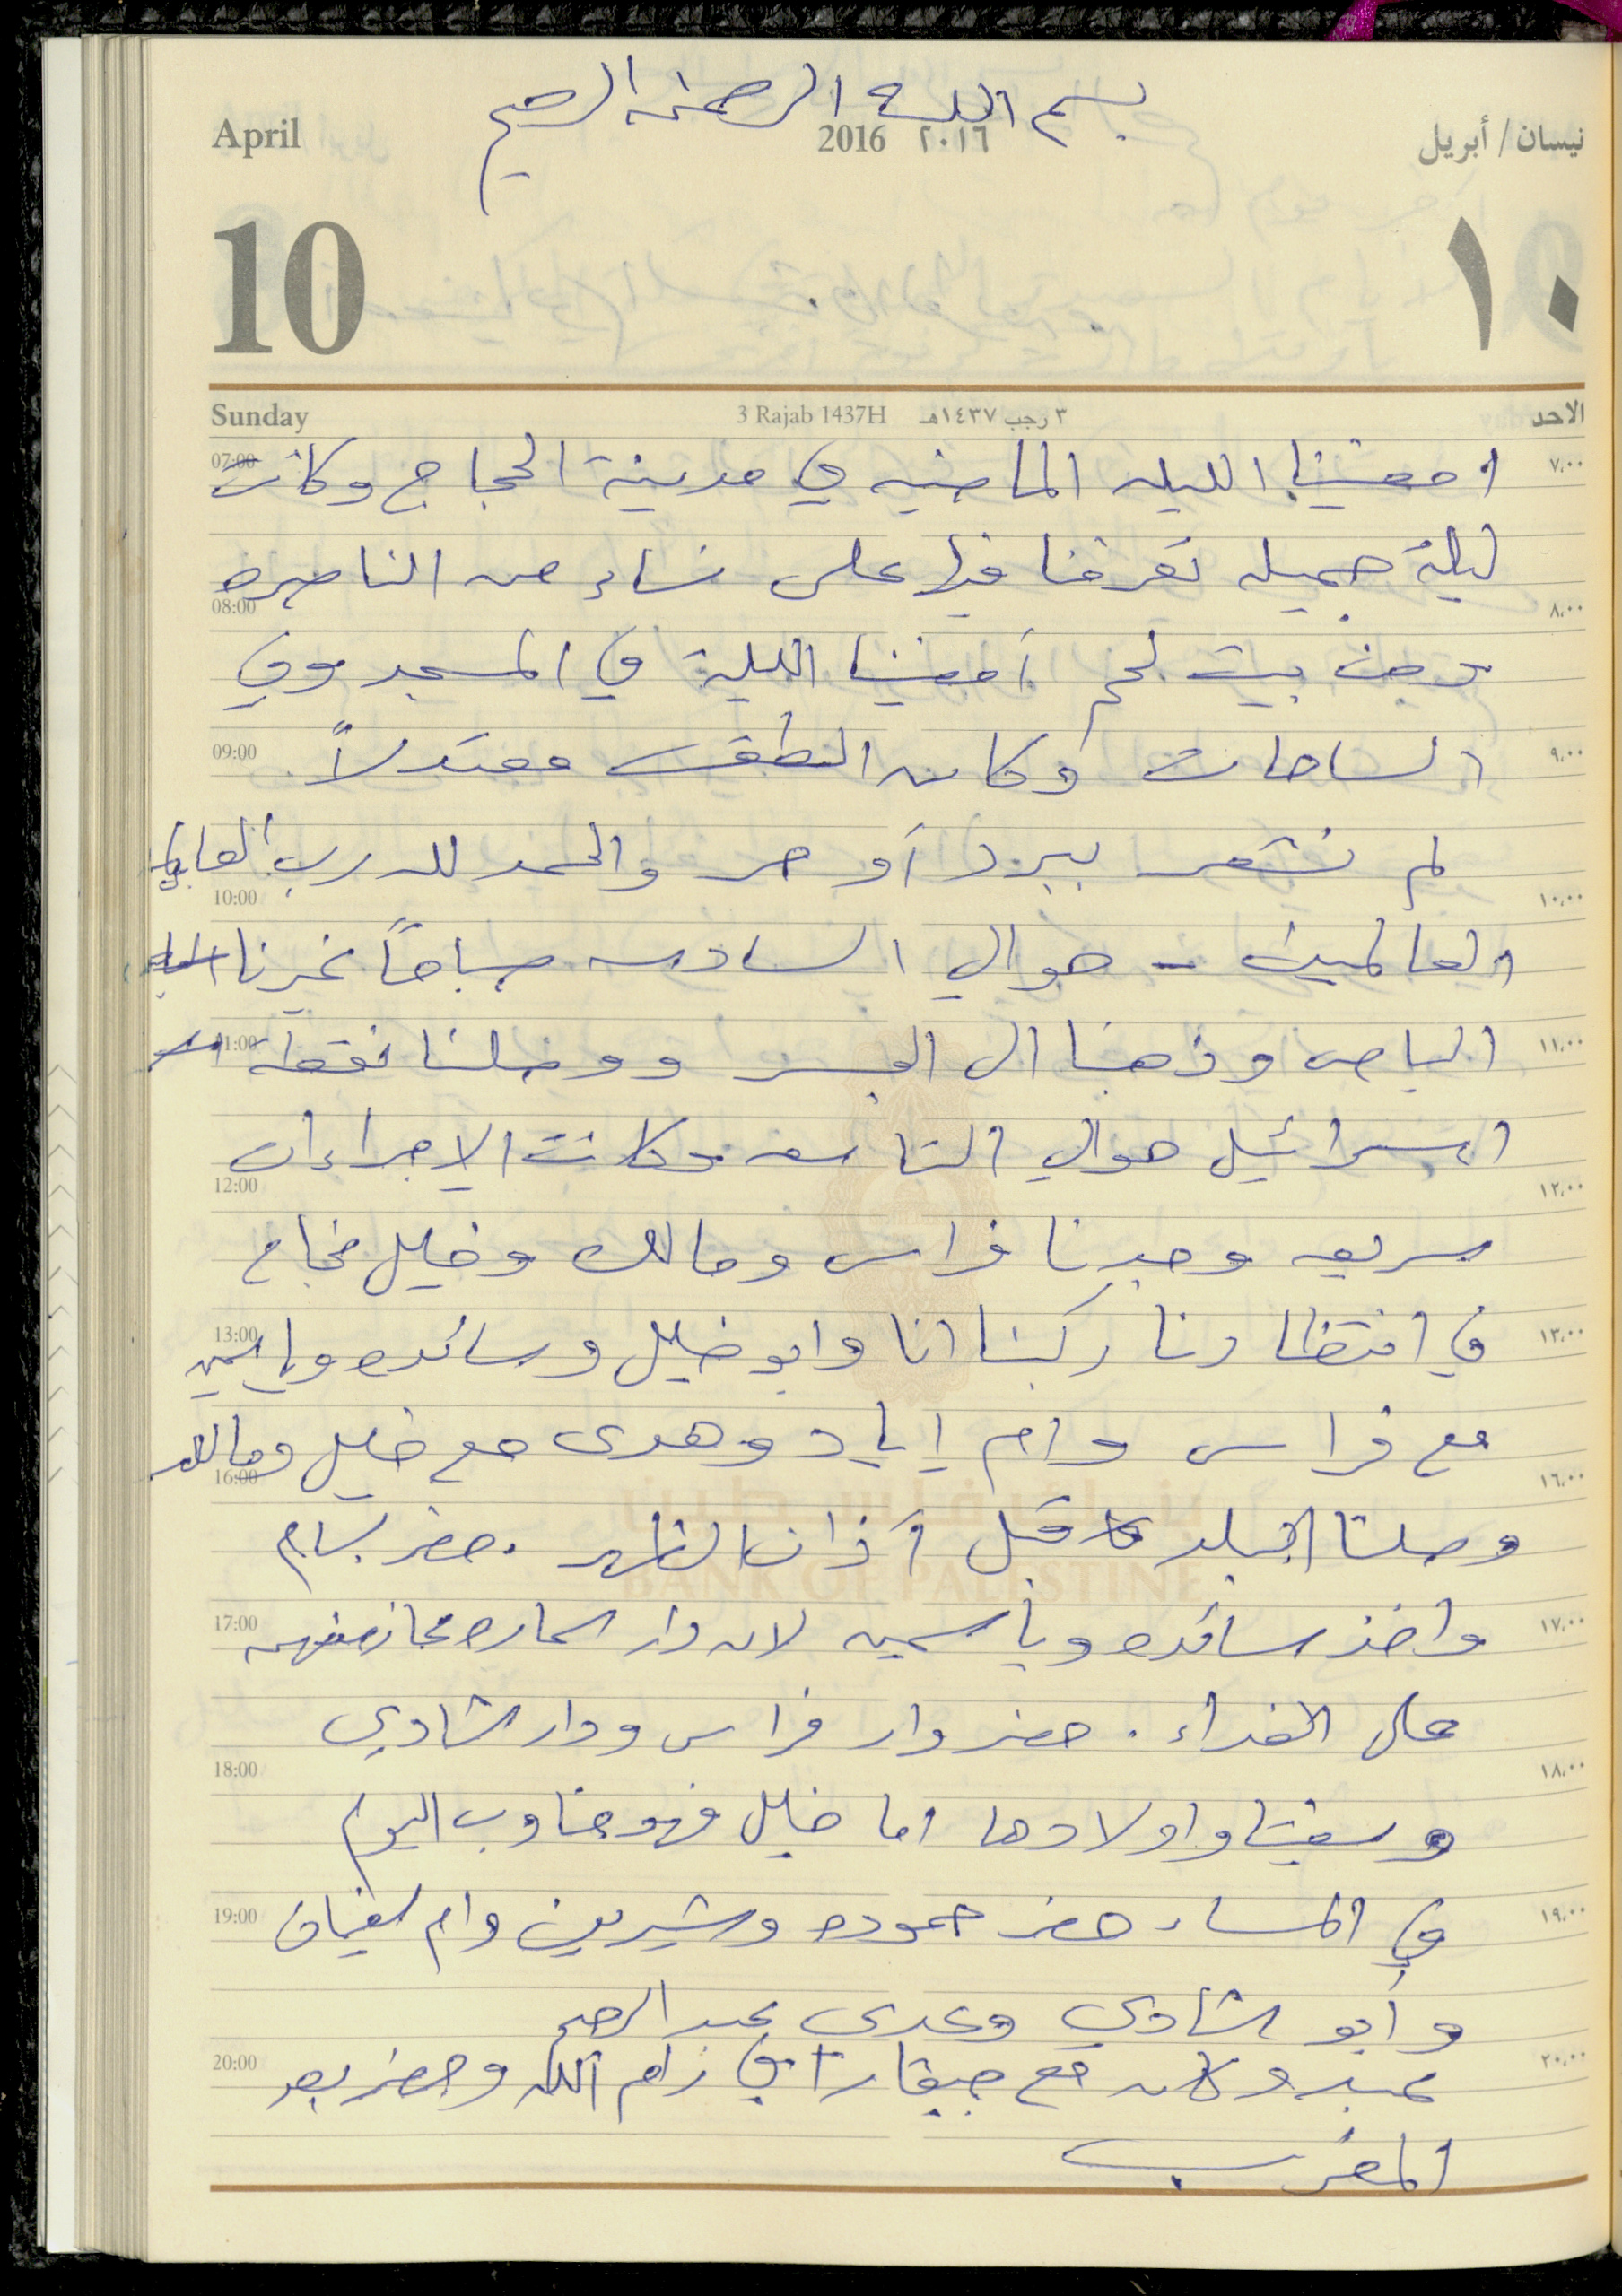 بسم الله الرحمن الرحيم
April 2016 ٢٠١٦ نيسان / أبريل
10 ١٠
Sunday 3 Rajab 1437H ٣ رجب ١٤٣٧هـ الاحد
07:00 امضينا الليله الماضيه في مدينة الحجاج وكانت ٧،٠٠
ليلة جميله تعرفنا فيها على نساء من الناصره
08:00 ٨،٠٠
ومن بيت لحم أمضينا الليلة في المسجد وفي
09:00 الساحات وكان الطقس معتدلاً ٩،٠٠
لم نشعر ببرد أو حر والحمد لله رب
10:00 ١٠،٠٠
العالمين - حوالي السادسه صباحاً غيرنا
11:00 الباص وذهبنا الى الجسر ووصلنا نقطة ١١،٠٠
اسرائيل حوالي التاسعه وكانت الاجراءات
12:00 ١٢،٠٠
سريعه وجدنا فراس ومالك وخليل
13:00 في انتظارنا ركبنا انا وابو خليل وسائده وياسمين ١٣،٠٠
مع فراس وام إياد وهدى مع خليل ومالك
16:00 ١٦،٠٠
بنك فلسطين
وصلنا البلد قبل أذان الظهر . حضر بسام
BANK OF PALESTINE
17:00 واخذ سائده وياسمين لان دار ١٧،٠٠
على الغداء . حضر دار فراس ودار الشادي
18:00 ١٨،٠٠
واولادها اما خليل فهو مناوب اليوم
19:00 في المساء حضر حموده وشيرين وام سفيان ١٩،٠٠
وأبو الشادي وعدي عبد الرحيم
20:00 وكان مع في رام الله وحضر بعد ٢٠،٠٠
المغرب